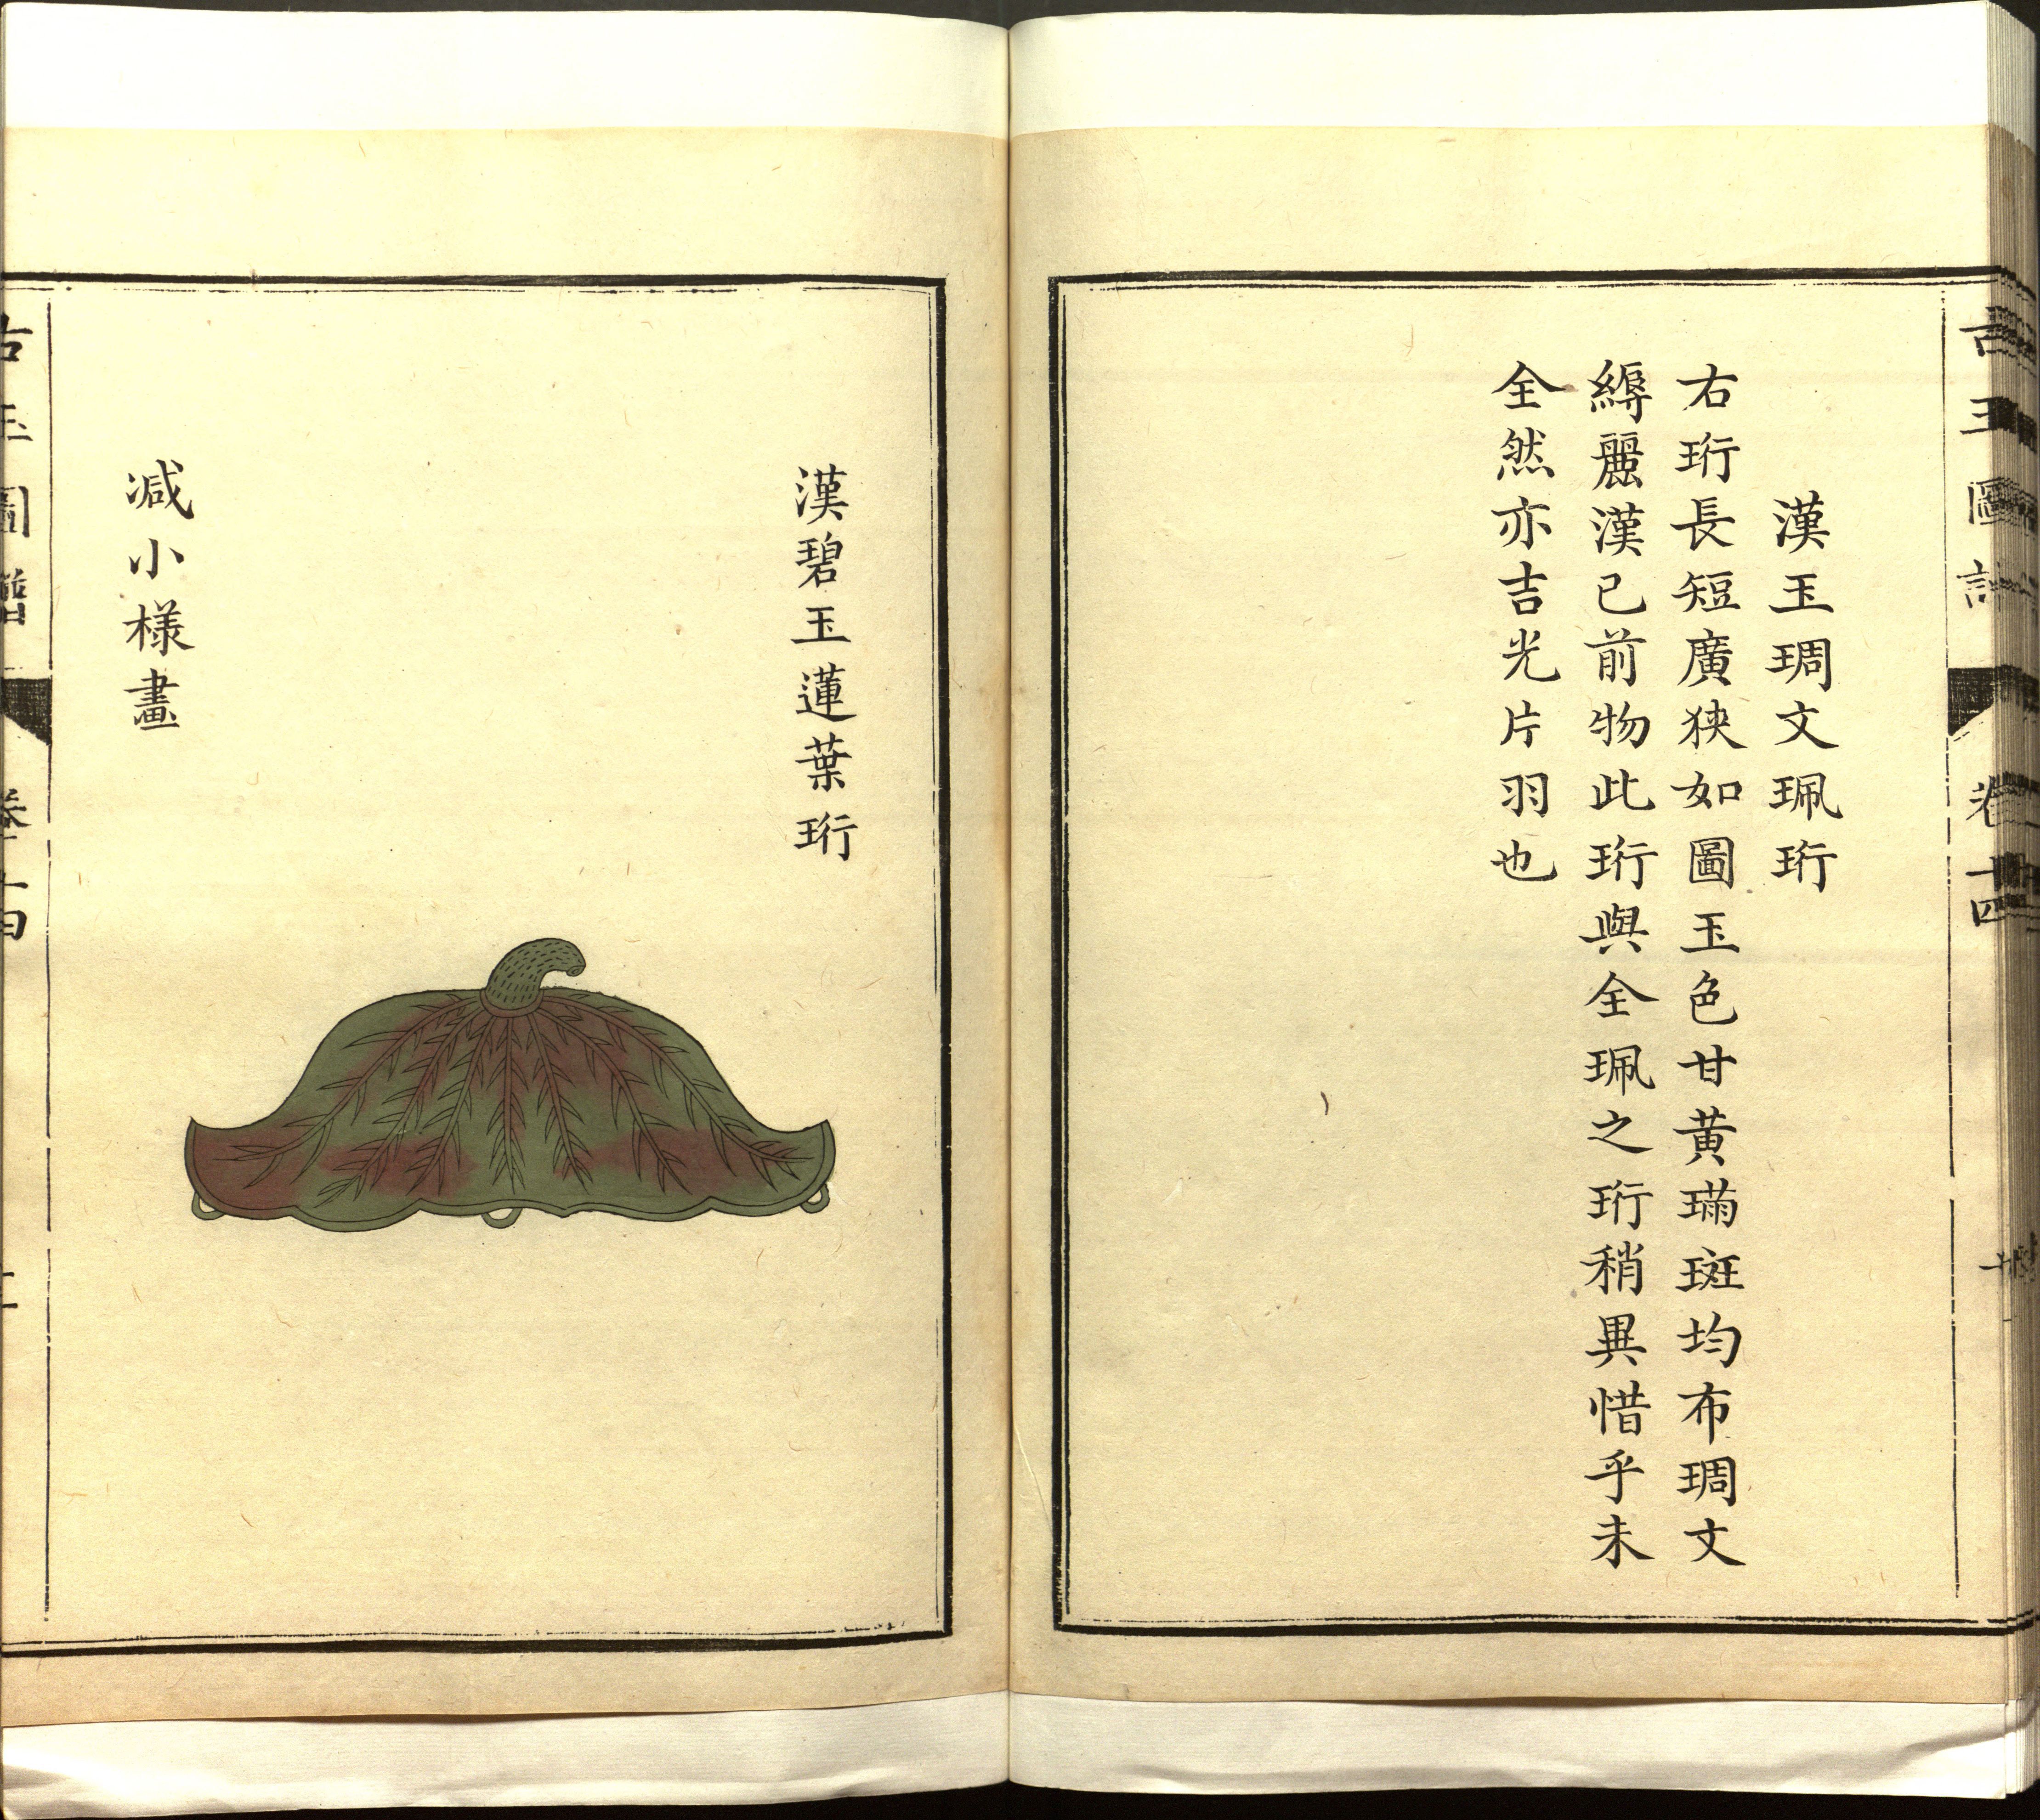 古玉圖譜 卷十四
漢玉琱文珮珩
右珩長短廣狹如圖玉色甘黄璊斑均布琱文
縟麗漢已前物此珩與全珮之珩稍異惜乎未
全然亦吉光片羽也
漢碧玉蓮葉珩
减小様畫
古玉圖譜 卷十四